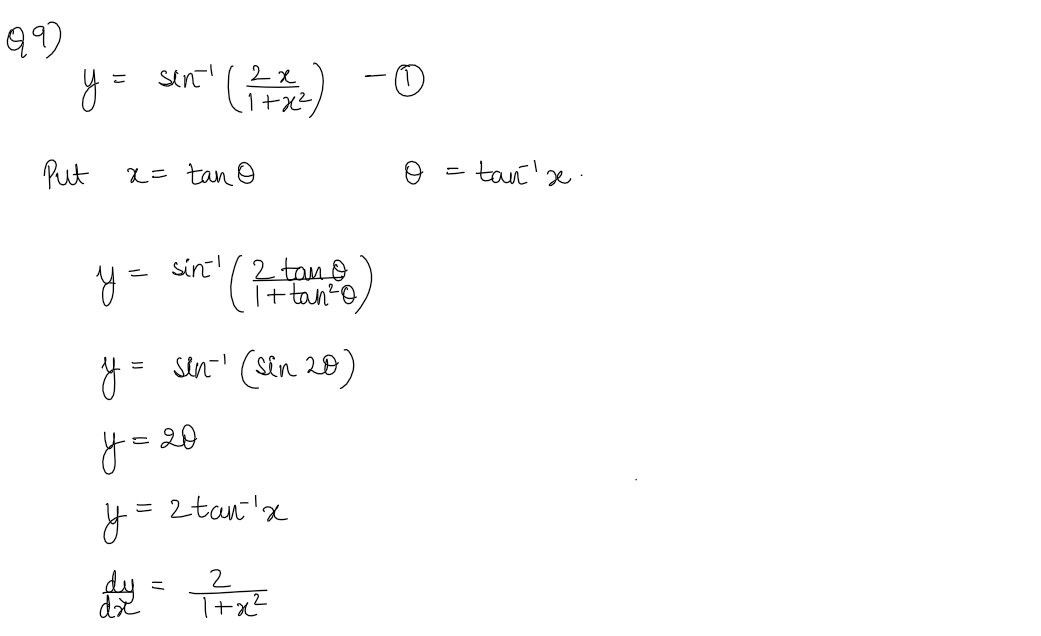 Q 9)
y = sin⁻¹ (2x / 1+x²) — ①
Put x = tan θ θ = tan⁻¹ x.
y = sin⁻¹ (2 tan θ / 1+tan²θ)
y = sin⁻¹ (sin 2θ)
y = 2θ
y = 2tan⁻¹x
dy/dx = 2 / 1+x²